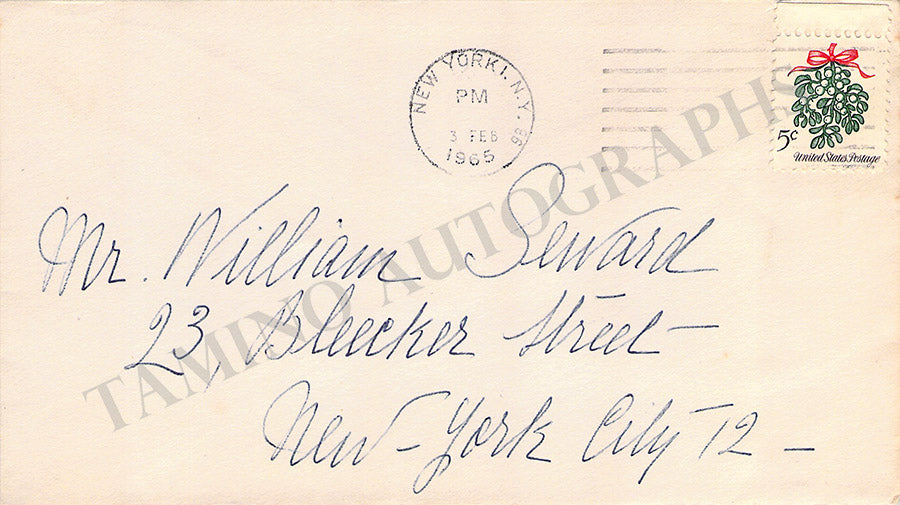 NEW YORK 1, N.Y.
PM
3 FEB
1965
5c
United States Postage
Mr. William Seward
23, Bleecker Street —
New-York City 12 —
TAMINO AUTOGRAPHS